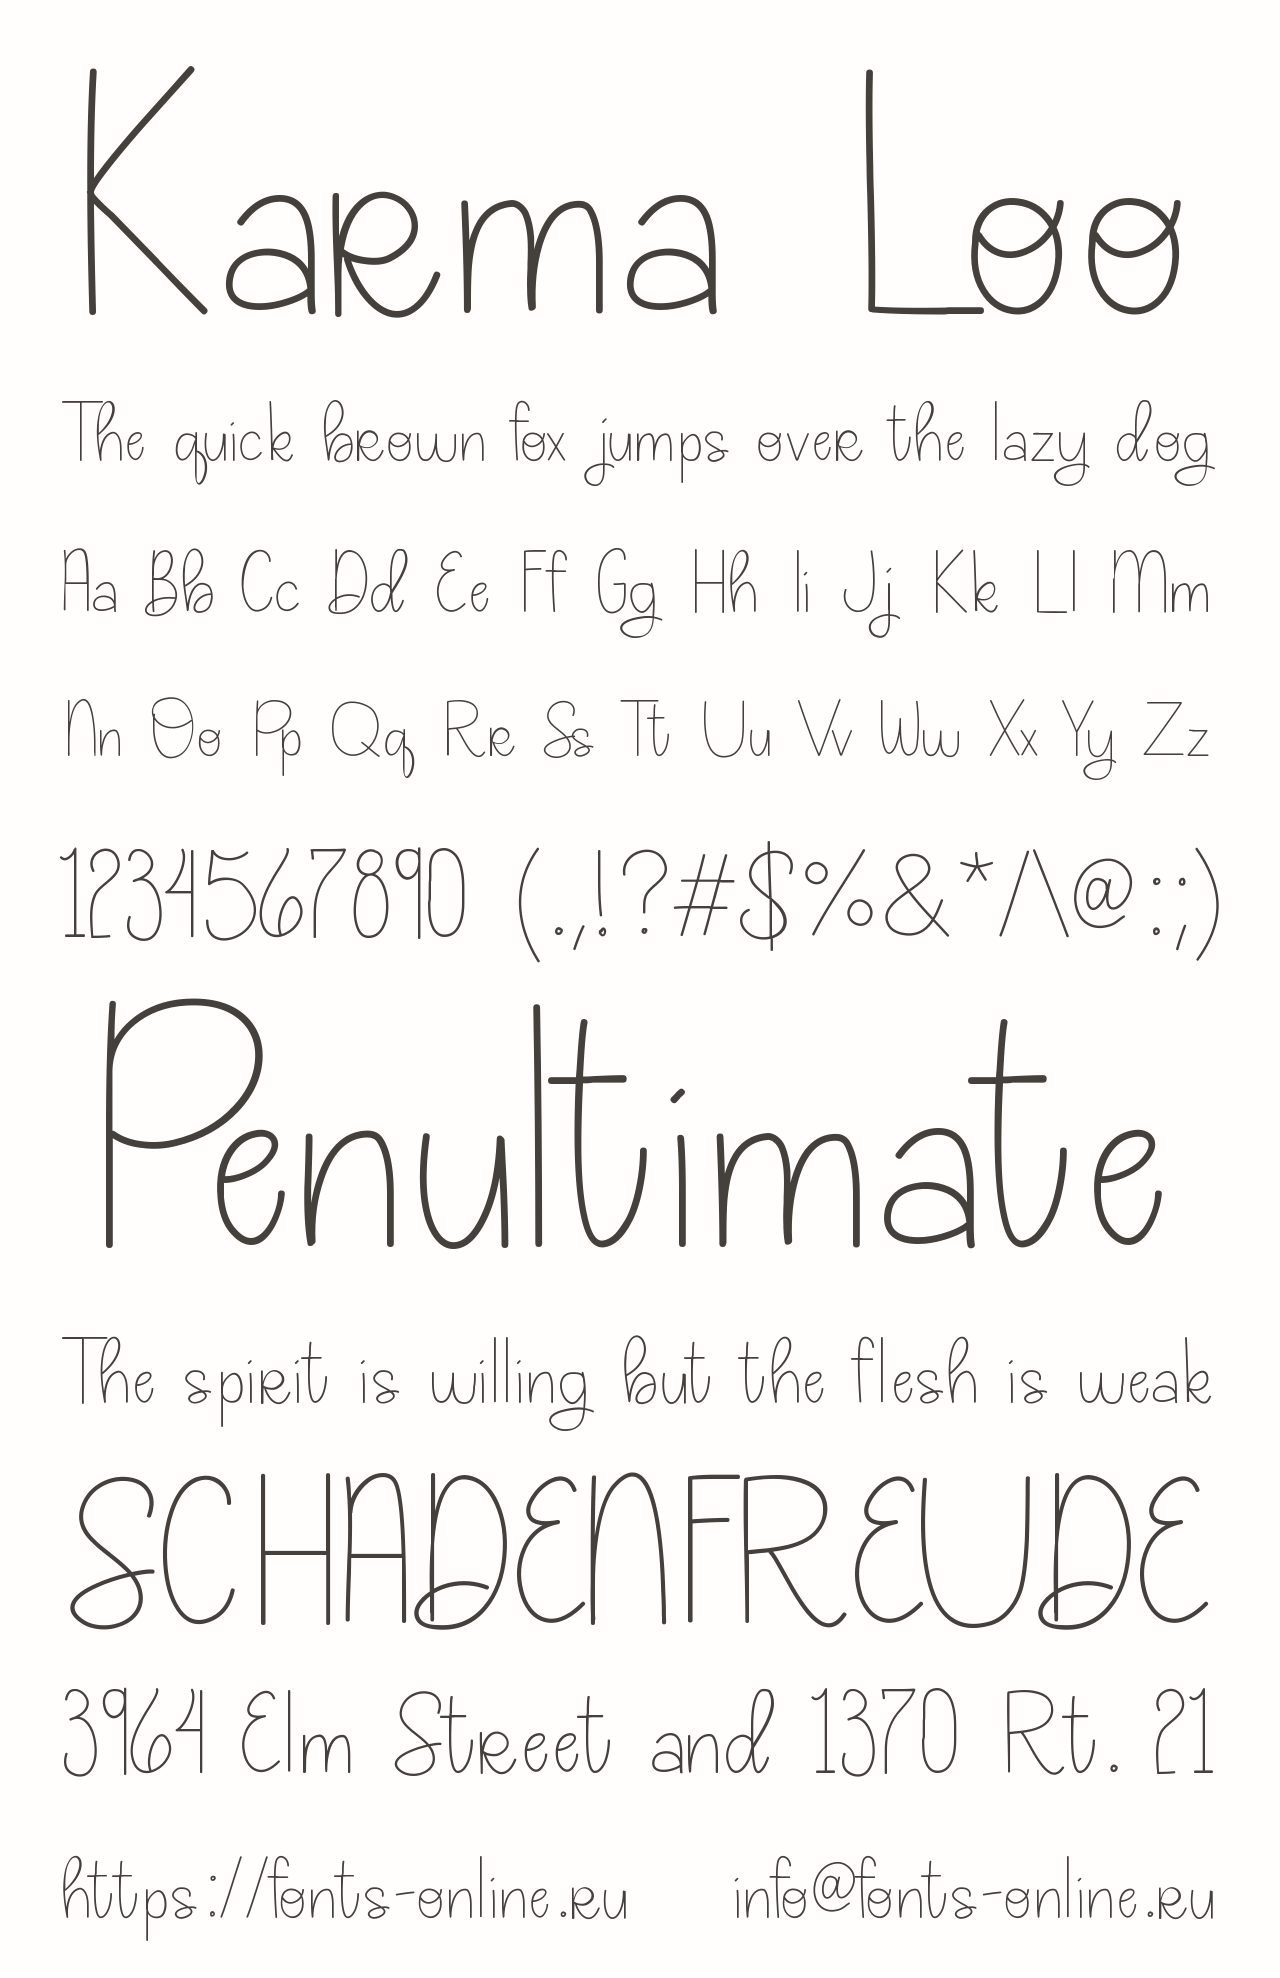 Karma Loo
The quick brown fox jumps over the lazy dog
Aa Bb Cc Dd Ee Ff Gg Hh Ii Jj Kk Ll Mm
Nn Oo Pp Qq Rr Ss Tt Uu Vv Ww Xx Yy Zz
1234567890 (.,!?#$%&*/\@:;)
Penultimate
The spirit is willing but the flesh is weak
SCHADENFREUDE
3964 Elm Street and 1370 Rt. 21
https://fonts-online.ru info@fonts-online.ru